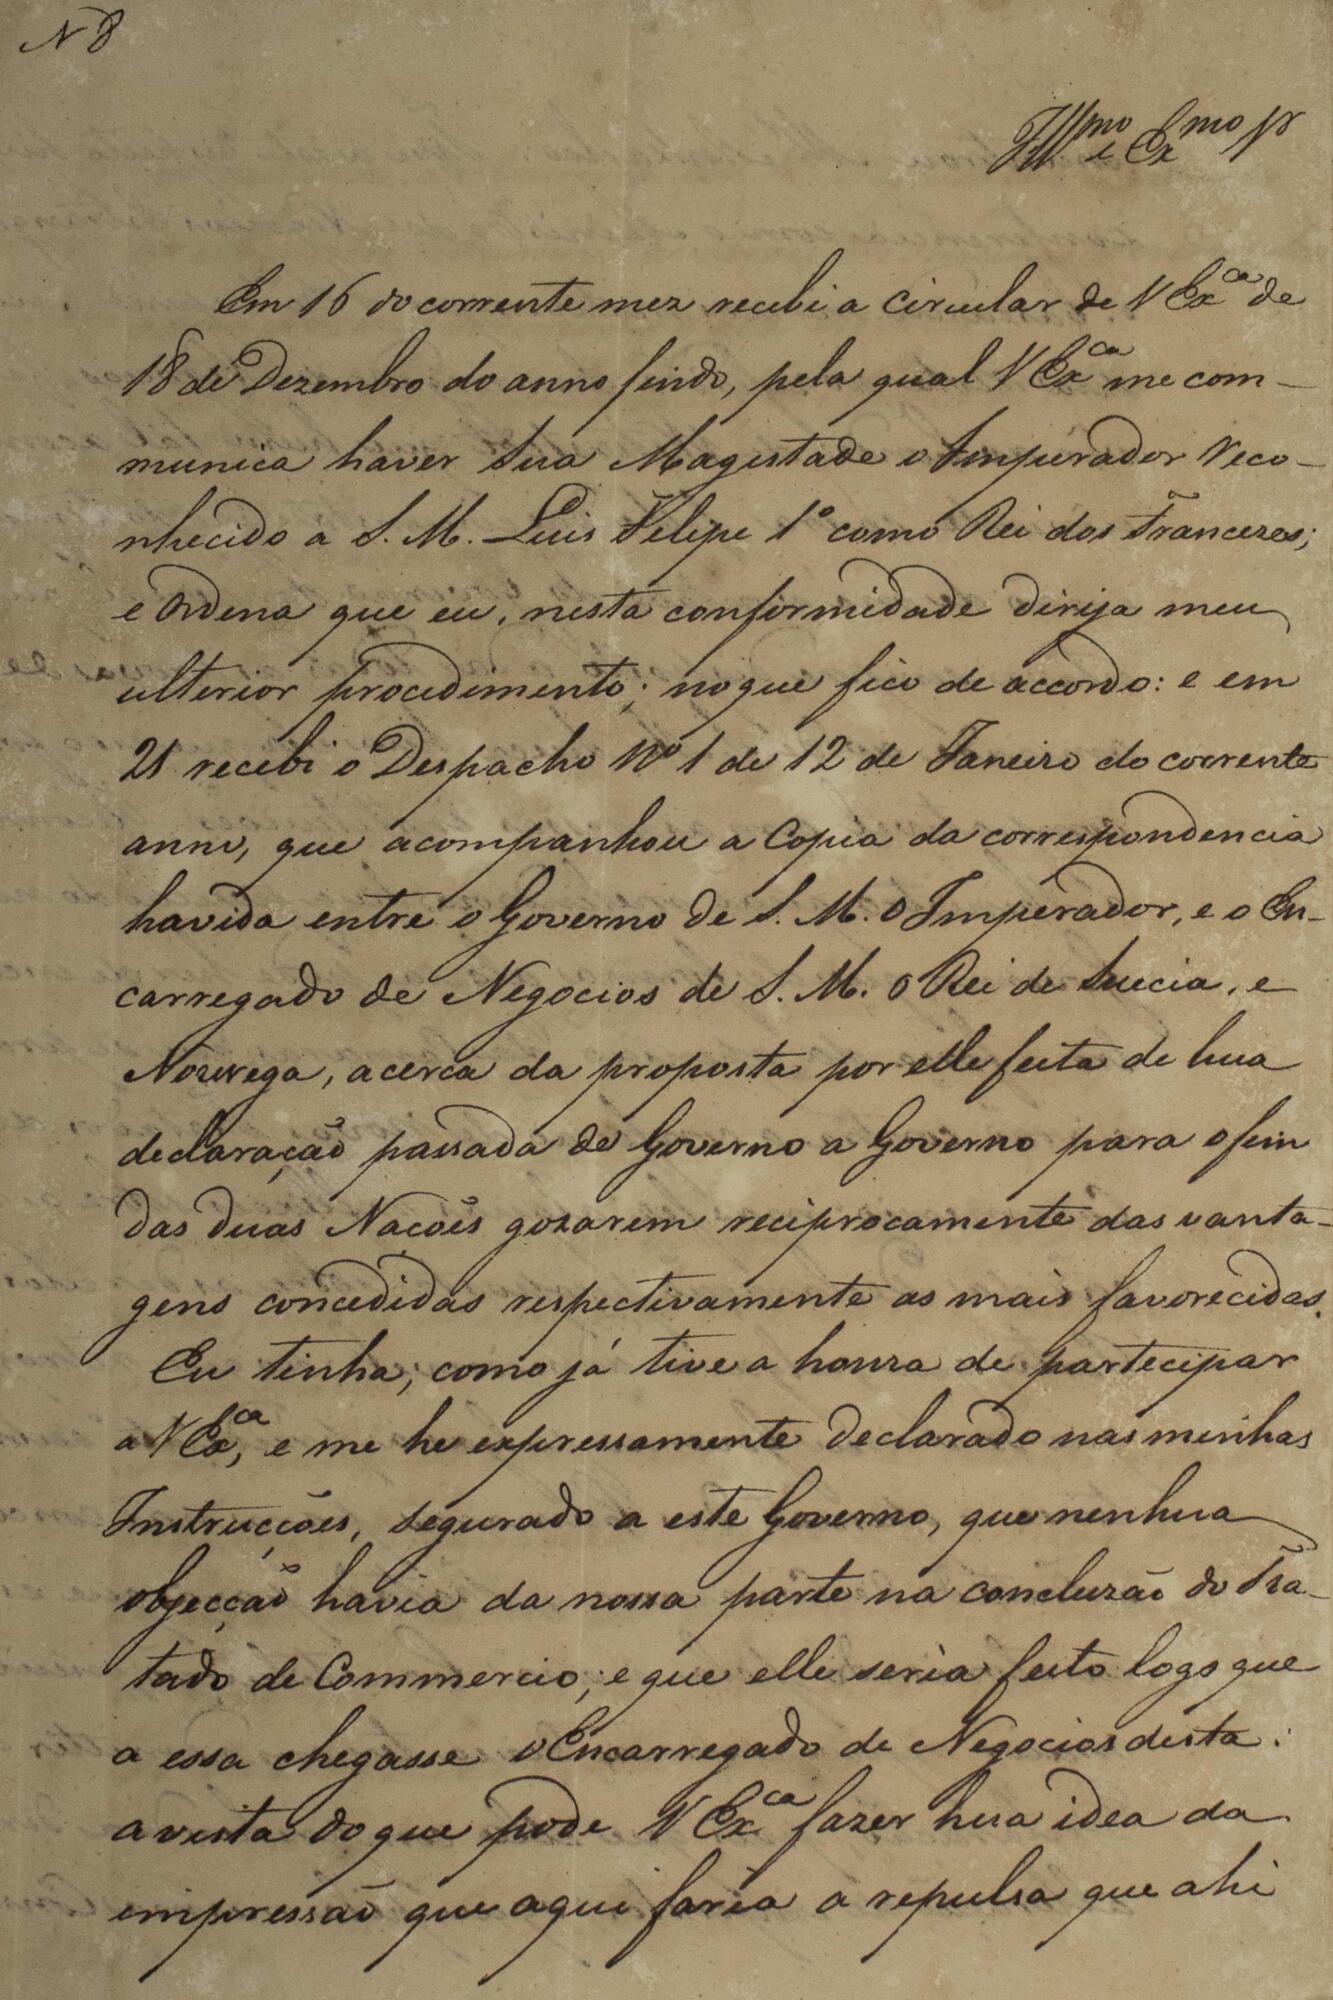 N 8
Ill.mo e Ex.mo Sr
Em 16 do corrente mez recebi a Circular de V Ex.ca de
18 de Dezembro do anno findo, pela qual V Ex.ca me com-
munica haver Sua Magestade o Imperador reco-
nhecido a S. M. Luis Felipe 1º como Rei dos Francezes;
e Ordena que eu, nesta conformidade dirija meu
ulterior procedimento; no que fico de accordo: e em
21 recebi o Despacho Nº 1 de 12 de Janeiro do corrente
anno, que acompanhou a Copia da correspondencia
havida entre o Governo de S. M. O Imperador, e o En-
carregado de Negocios de S. M. O Rei de Suecia, e
Norwega, acerca da proposta por elle feita de hua
declaração passada de Governo a Governo para o fim
das duas Nacões gozarem reciprocamente das vanta-
gens concedidas respectivamente as mais favorecidas.
Eu tinha; como já tive a honra de partecipar
a V Ex.ca, e me he expressamente declarado nas minhas
Instrucções, segurado a este Governo, que nenhua
objecção havia da nossa parte na concluzão do Tra-
tado de Commercio; e que elle seria feito logo que
a essa chegasse o Encarregado de Negocios desta:
a vista do que pode V Ex.ca fazer hua idea da
empressão que aqui faria a repulsa que ahi